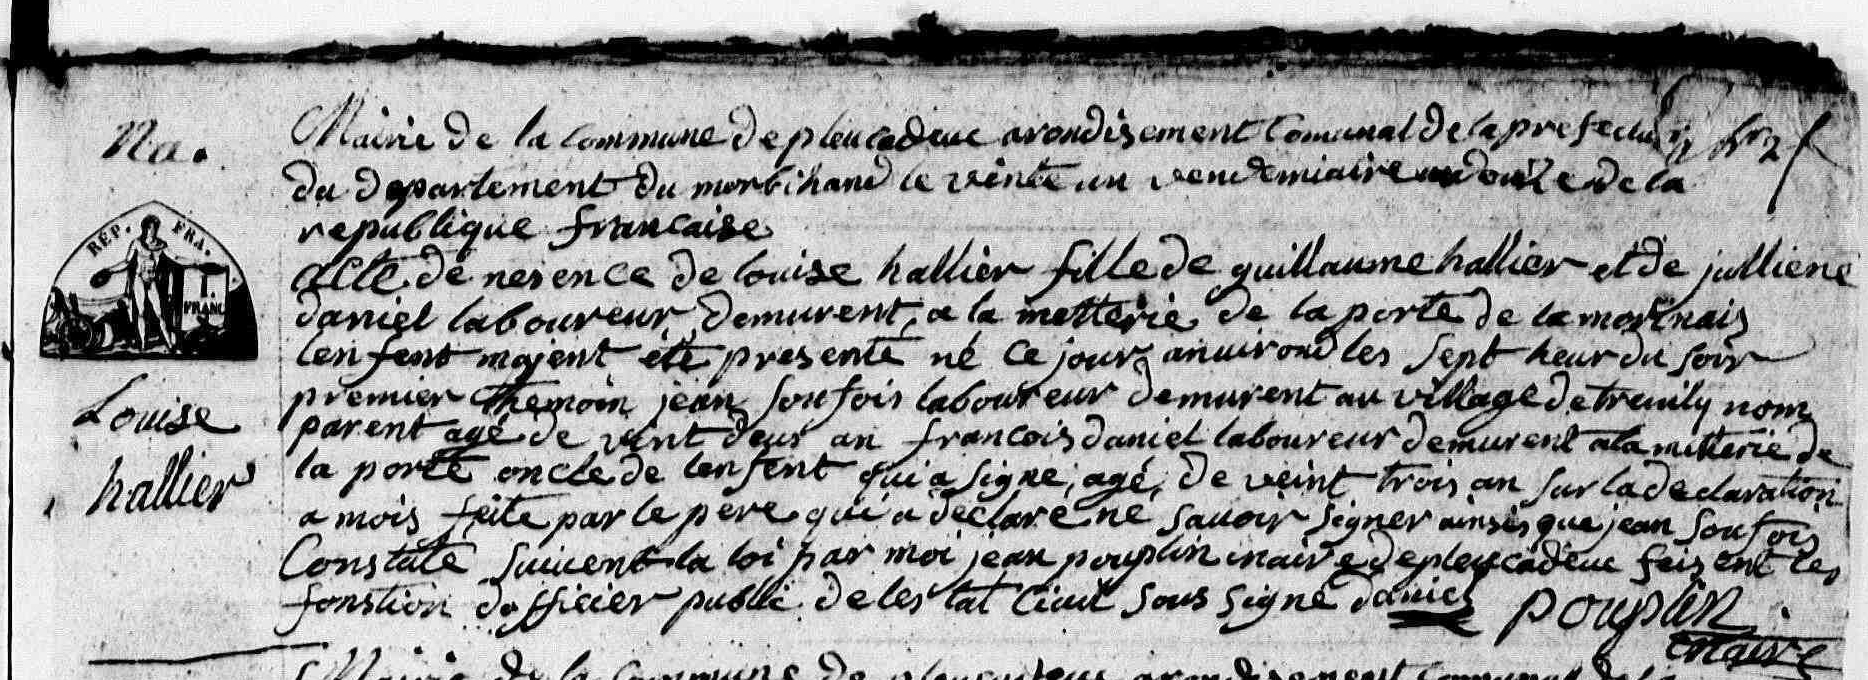 Na.
Mairie de la commune de pleucadeuc arondisement Comunal de la prefectur
du departement du morbihand le vinte un vendemiaire an douze de la
republique francaise
REP. FRA.
1. FRANC
acte de nesence de louise hallier fille de guillaume hallier et de julliene
daniel laboureur demurent, a la metterie de la porte de la morinais
lenfent majent été presenté né ce jour anuirond les sept heur du soir
premier themoin jean soufois laboureur demurent au village de treuily nom
parent agé de vint deus an francois daniel laboureur demurent a la mitterie de
la porte oncle de lenfent qui a signe, agé, de veint trois an sur la declaration
a mois feite par le pere qui a déclaré ne sauoir signer ainsis que jean soufois
Constaté suiuent la loi par moi jean pouplin maire de pleucadeuc feisent les
fonstion dofficier public de les tat Ciuil sous signé daniel pouplin
maire
Louise
hallier
Mairie de la commune de pleucadeuc arondisement Communal de la